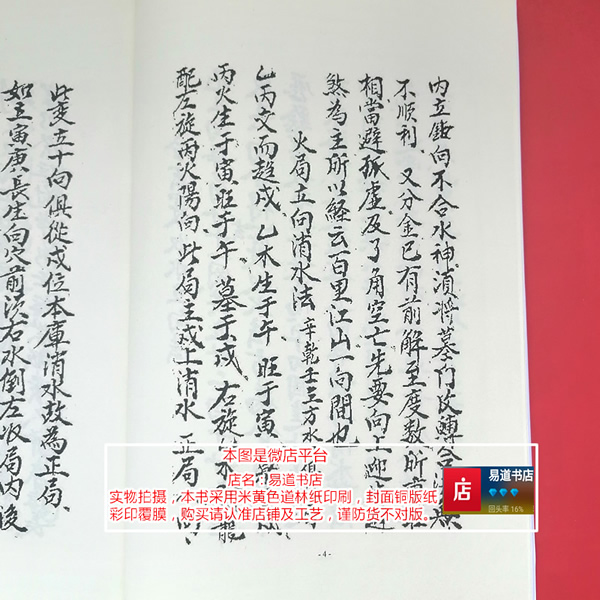 内立縫向不合水神須將墓門改轉
不順利、又分金已有前解至度數所
相當避孤虛及了角空亡先要向上迎
煞為主所以經云百里江山一向間也
火局立向消水法 辛乾壬三方水俱
乙丙交而趨戍、乙木生于午、旺于寅、
丙火生于寅旺于午、墓于戍、右旋
配左旋丙火陽向、此局主戍上消水、正局
-4-
此炗立十向俱從戍位本庫消水故為正局、
如立寅庚長生向穴前須右水倒左收局內後
本图是微店平台
店名：易道书店
实物拍摄，本书采用米黄色道林纸印刷，封面铜版纸
彩印覆膜，购买请认准店铺及工艺，谨防货不对版。
店
易道书店
回头率 16%